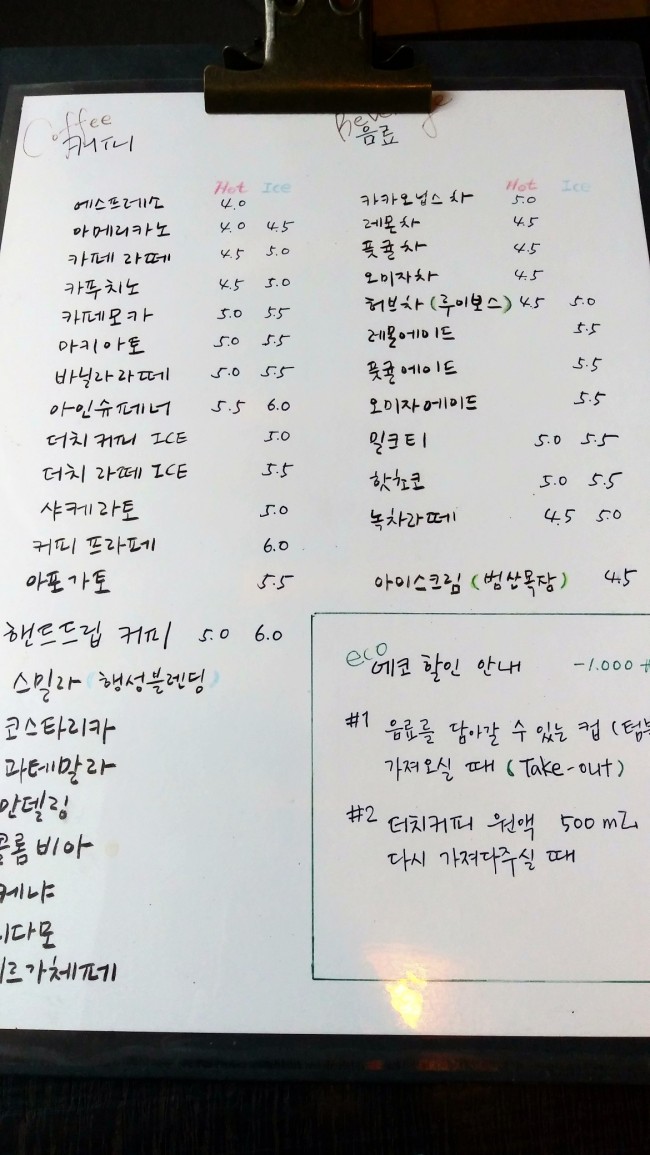 Coffee
커피
Hot Ice
에스프레소 4.0
아메리카노 4.0 4.5
카페 라떼 4.5 5.0
카푸치노 4.5 5.0
카페모카 5.0 5.5
마키아토 5.0 5.5
바닐라라떼 5.0 5.5
아인슈페너 5.5 6.0
더치커피 ICE 5.0
더치 라떼 ICE 5.5
샤케라토 5.0
커피 프라페 6.0
아포가토 5.5
핸드드립 커피 5.0 6.0
스밀라 (행성블렌딩)
코스타리카
과테말라
만델링
콜롬비아
케냐
다모
르가체페
음료
Hot Ice
카카오닙스차 5.0
레몬차 4.5
풋귤차 4.5
오미자차 4.5
허브차 (루이보스) 4.5 5.0
레몬에이드 5.5
풋귤에이드 5.5
오미자에이드 5.5
밀크티 5.0 5.5
핫초코 5.0 5.5
녹차라떼 4.5 5.0
아이스크림 (범산목장) 4.5
eco
에코 할인 안내 -1.000
#1 음료를 담아갈 수 있는 컵 (텀
가져오실 때 (Take-out)
#2 더치커피 원액 500 mL
다시 가져다주실 때